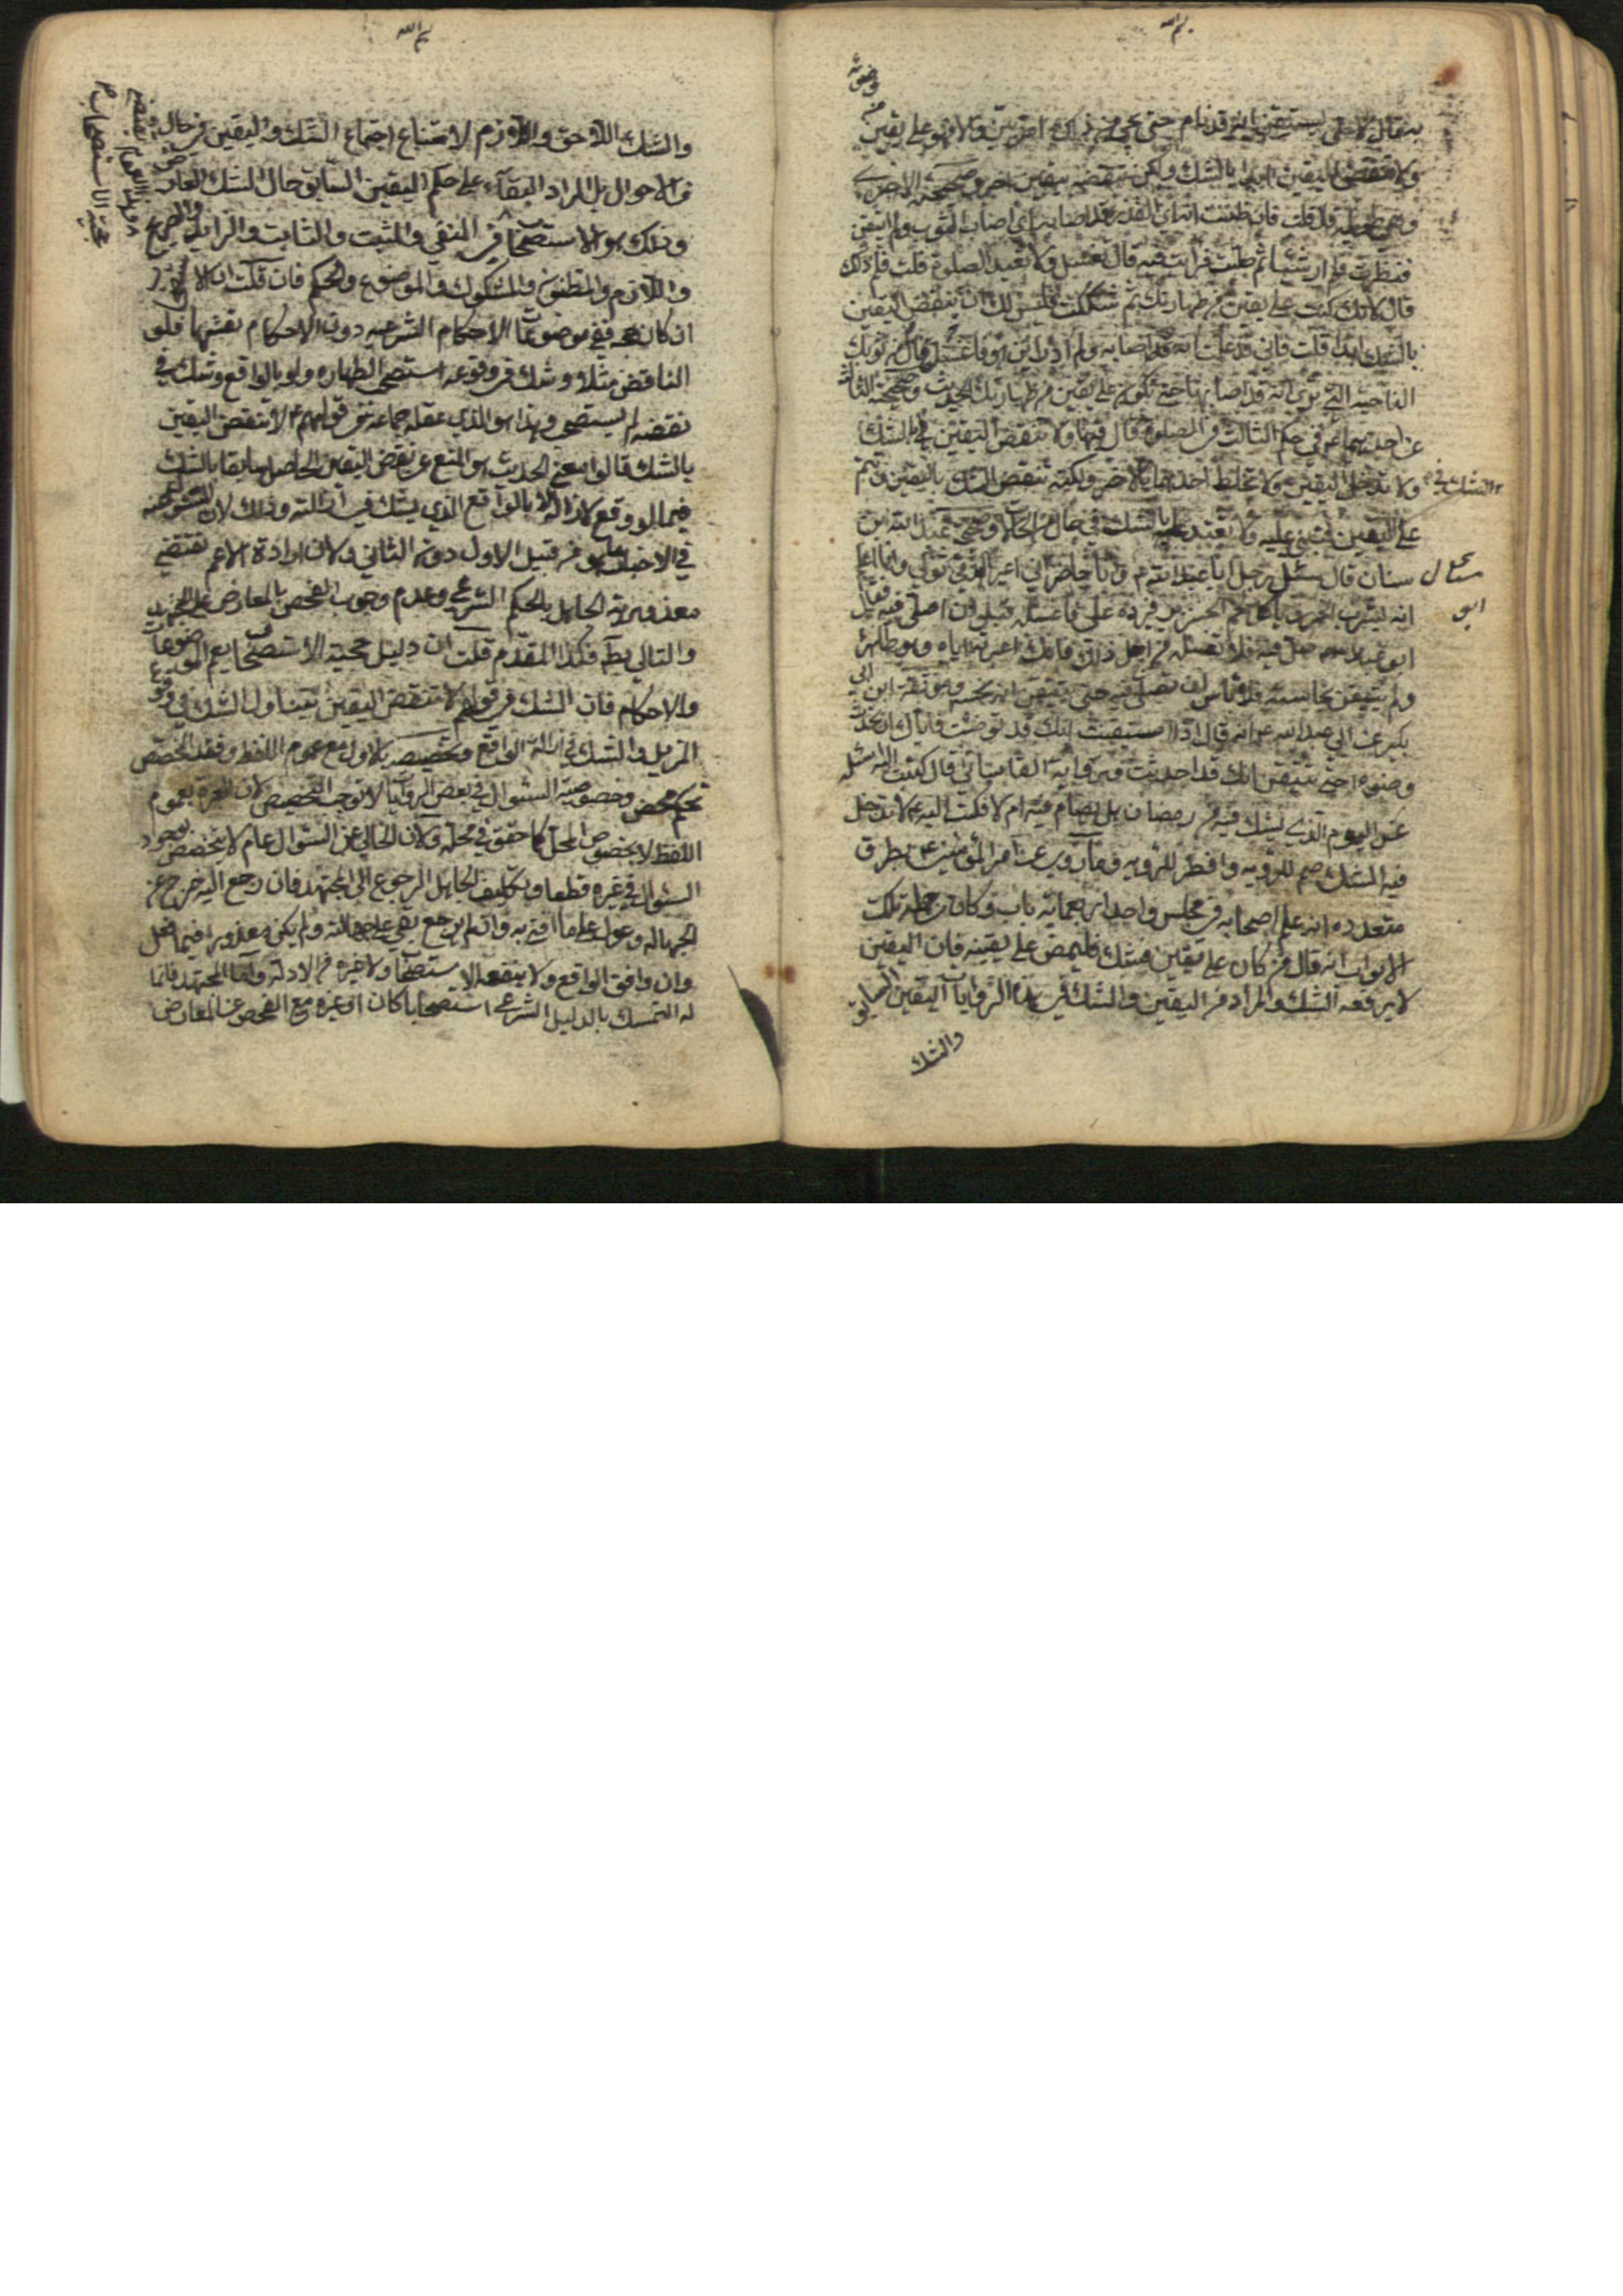 بسم الله
فقال لا حتى يستيقن انه قد نام حتى يجيء من ذلك امر بين والا فهو على يقين
من وضوئه
ولا تنقض اليقين ابدا بالشك ولكن تنقضه بيقين اخر وصحيحته الاخرى
وهي طويلة قال قلت فان ظننت انه قد اصابه اي اصاب الثوب ولم اتيقن
فنظرت فلم ار شيئا ثم صليت فرايت فيه قال تغسل ولا تعيد الصلوة قلت فلم ذلك
قال لانك كنت على يقين من طهارتك ثم شككت فليس لك ان تنقض اليقين
بالشك ابدا قلت فاني قد علمت انه قد اصابه ولم ادر اين هو فاغسل قال من ثوبك
الناحية التي ترى انه قد اصابها حتى تكون على يقين من طهارتك الحديث وصحيحته الثالثة
عن احدهما ع في حكم الثالث من الصلوة قال فيها ولا تنقض اليقين بالشك
ولا تدخل الشك في اليقين ولا تخلط احدهما بالاخر ولكنه تنقض الشك باليقين وتتم
على اليقين فتبني عليه ولا تعتد بالشك في حال من الحالات وصحيحة عبد الله بن
سنان قال سئل رجل ابا عبد الله ع وانا حاضر اني اعير الذمي ثوبي وانا اعلم
انه يشرب الخمر وياكل لحم الخنزير فيرده علي فاغسله قبل ان اصلي فيه فقال
ابو عبد الله صل فيه ولا تغسله من اجل ذلك فانك اعرته اياه وهو طاهر
ولم تتيقن نجاسته فلا باس ان تصلي فيه حتى تتيقن انه نجسه وموثقة ابن
بكير عن ابي عبد الله ع انه قال اذا استيقنت انك قد توضئت فاياك ان تحدث
وضوء حتى تتيقن انك قد احدثت ورواية القاساني قال كتبت اليه اسئله
عن اليوم الذي يشك فيه من رمضان هل يصام فيه ام لا فكتب اليه ع لا تدخل
فيه الشك صم للرؤيه وافطر للرؤيه وما روي عن امير المؤمنين ع بطرق
متعدده انه علم اصحابه في مجلس واحد اربعمائة باب وكان من جملة تلك
الابواب انه قال من كان على يقين فشك فليمض على يقينه فان اليقين
لا يرفعه الشك والمراد من اليقين والشك في هذه الروايات اليقين السابق
والشك
بسم الله
والشك اللاحق والا لزم لامتناع اجتماع الشك واليقين في حال
من الاحوال بل المراد البقاء على حكم اليقين السابق حال الشك العارض
وذلك هو الاستصحاب في المنفي والمثبت والثابت والرافع
واللازم والمظنون والمشكوك والموضوع والحكم فان قلت ان الاخبار
ان كان حجة ففي موضوعات الاحكام الشرعيه دون الاحكام نفسها فلو
الناقض مثلا وشك في وقوعه استصحب الطهاره ولو بالواقع وشك في
نقضه لم يستصحب وهذا هو الذي عقله جماعة من قولهم ع لا تنقض اليقين
بالشك قالوا معنى الحديث هو المنع عن نقض اليقين الحاصل سابقا بالشك
فيما لو وقع لازاله لا بالواقع الذي يشك في ازالته وذلك لان المسئول عنه
في الاخبار هو من قبيل الاول دون الثاني ولان ارادة الاعم تقتضي
معذورية الجاهل بالحكم الشرعي وعدم وجوب الفحص بالمعارض على المجتهد
والتالي بط فكذا المقدم قلت ان دليل حجية الاستصحاب يعم الموضوعات
والاحكام فان الشك في قوله لا تنقض اليقين يتناول الشك في وقوع
المزيل والشك في ازالة الواقع وتخصيصه بالاول مع عموم اللفظ وفقد المخصص
تحكم محض وخصوصية السئوال في بعض الروايات لا توجب التخصيص لان العبرة بعموم
اللفظ لا بخصوص المحل كما حقق في محله ولان الخالي عن السئوال عام لا يتخصص بوجود
السئوال في غيره قطعا وتكليف الجاهل الرجوع الى المجتهد فان رجع اليه خرج عن
الجهاله وعول على ما افتى به وان لم يرجع بقي على جهالته ولم يكن معذورا فيما فعل
وان وافق الواقع ولا ينفعه الاستصحاب ولا غيره من الادلة واما المجتهد فانما
له التمسك بالدليل الشرعي استصحابا كان او غيره مع الفحص عن المعارض